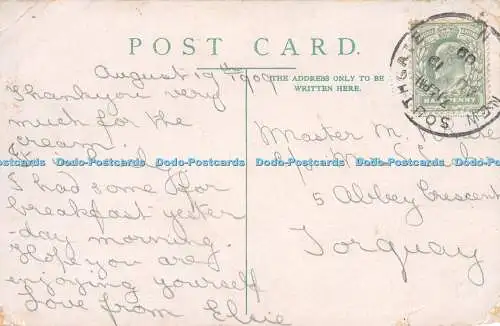 POST CARD.
August 19th 1909
THE ADDRESS ONLY TO BE
WRITTEN HERE.
Thankyou very
much for the
cream.
I had some for
breakfast yester
-day morning.
Hope you are
enjoying yourself
Love from Elsie
Master M.
5 Abbey Crescent
Torquay
NEW SOUTHGATE
HALFPENNY
Dodo-Postcards Dodo-Postcards Dodo-Postcards Dodo-Postcards Dodo-Postcards Dodo-Postcards